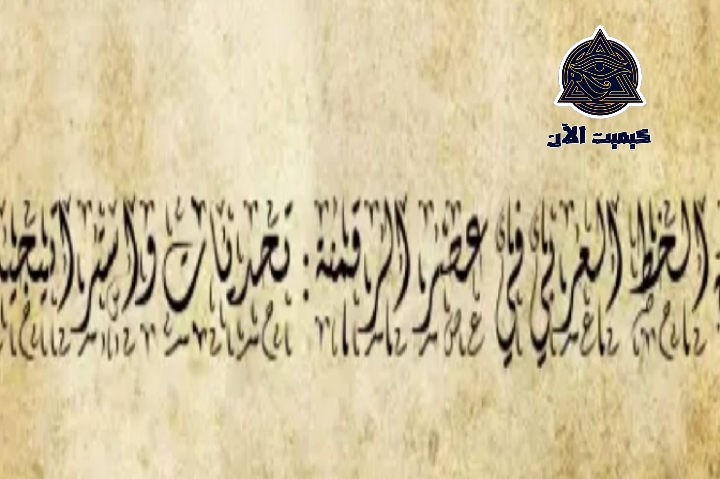 كيميت الآن
الخط العربي في عصر الرقمنة: تحديات واستراتيجيا